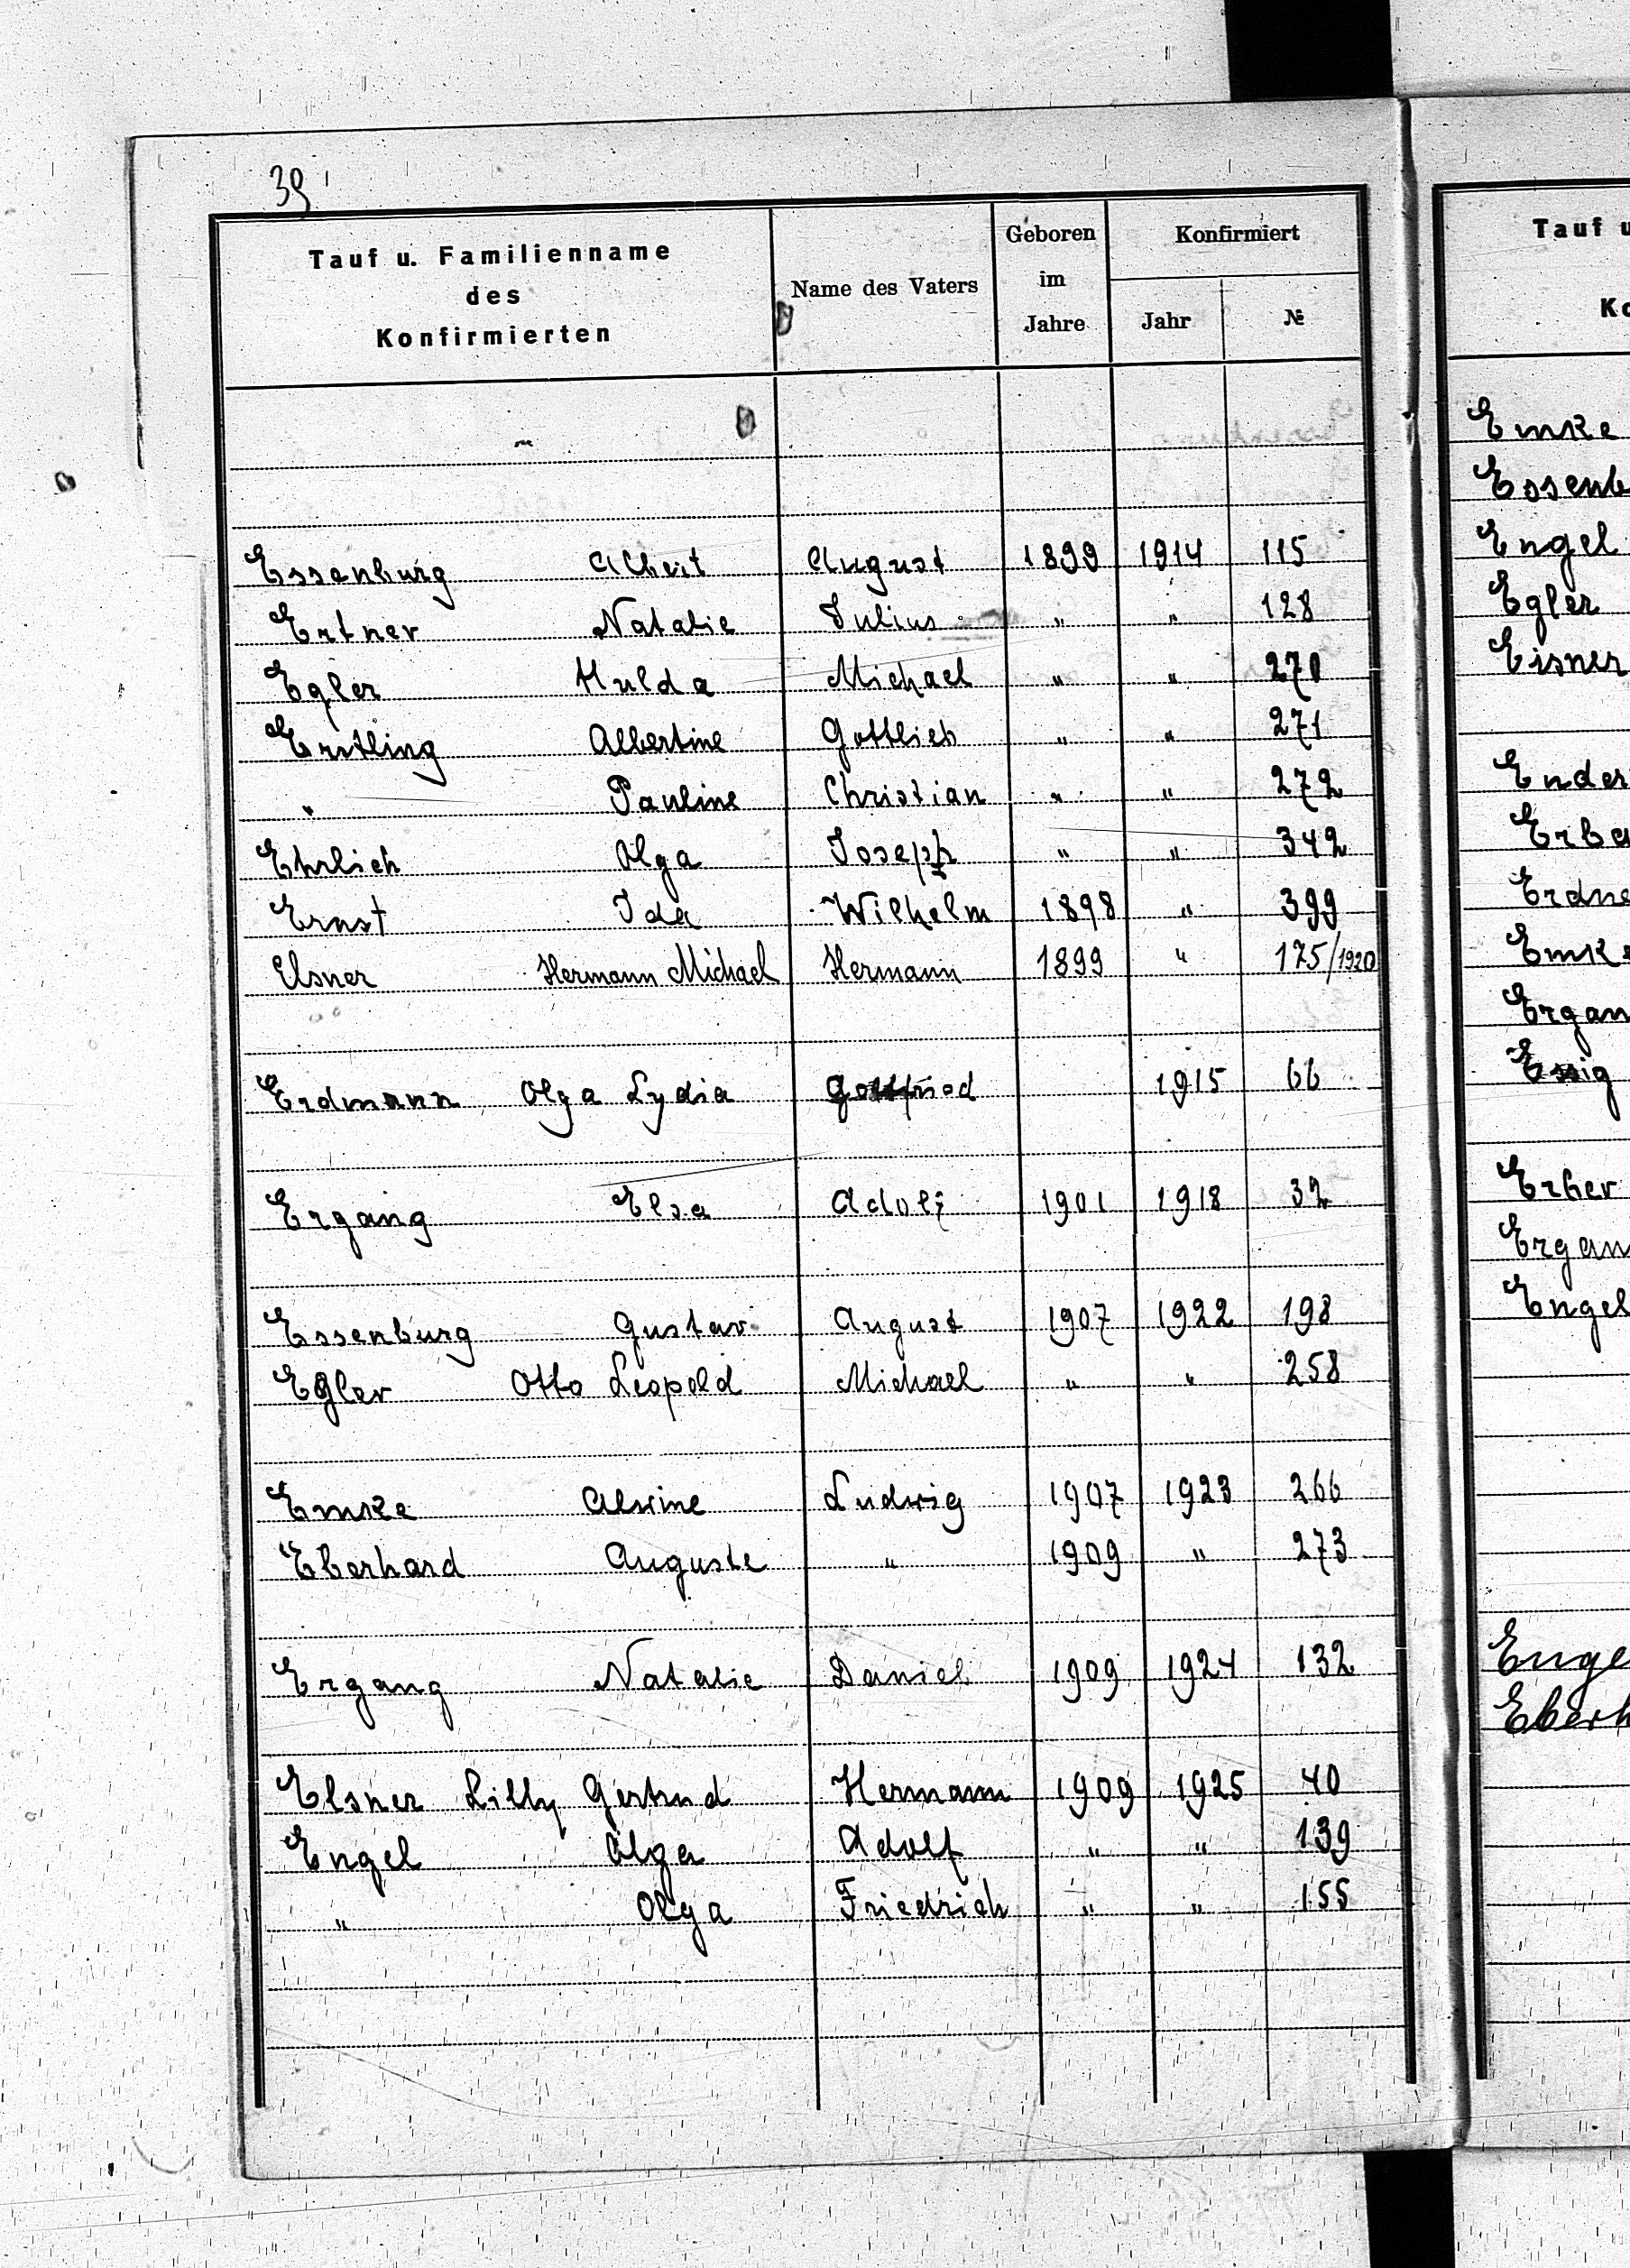 39
Tauf u. Familienname des Konfirmierten | Name des Vaters | Geboren im Jahre | Konfirmiert Jahr | №
Essenburg Albert August 1899 1914 115
Ertner Natalie Julius " " 128
Egler Hulda Michael " " 270
Erstling Albertine Gottlieb " " 271
" Pauline Christian " " 272
Ehrlich Olga Joseph " " 342
Ernst Ida Wilhelm 1898 " 399
Elsner Hermann Michael Hermann 1899 " 175/1920
Erdmann Olga Lydia Gottfried 1915 66
Ergang Elsa Adolf 1901 1918 32
Essenburg Gustav August 1907 1922 198
Egler Otto Leopold Michael " " 258
Emke Alwine Ludwig 1907 1923 266
Eberhard Auguste " 1909 " 273
Ergang Natalie Daniel 1909 1924 132
Elsner Lilly Gertrud Hermann 1909 1925 40
Engel Olga Adolf " " 139
" Olga Friedrich " " 155
Tauf u
Ko
Emke
Essenb
Engel
Egler
Eisner
Ender
Erba
Erdne
Emke
Ergan
Essig
Erber
Ergan
Engel
Enge
Eberh